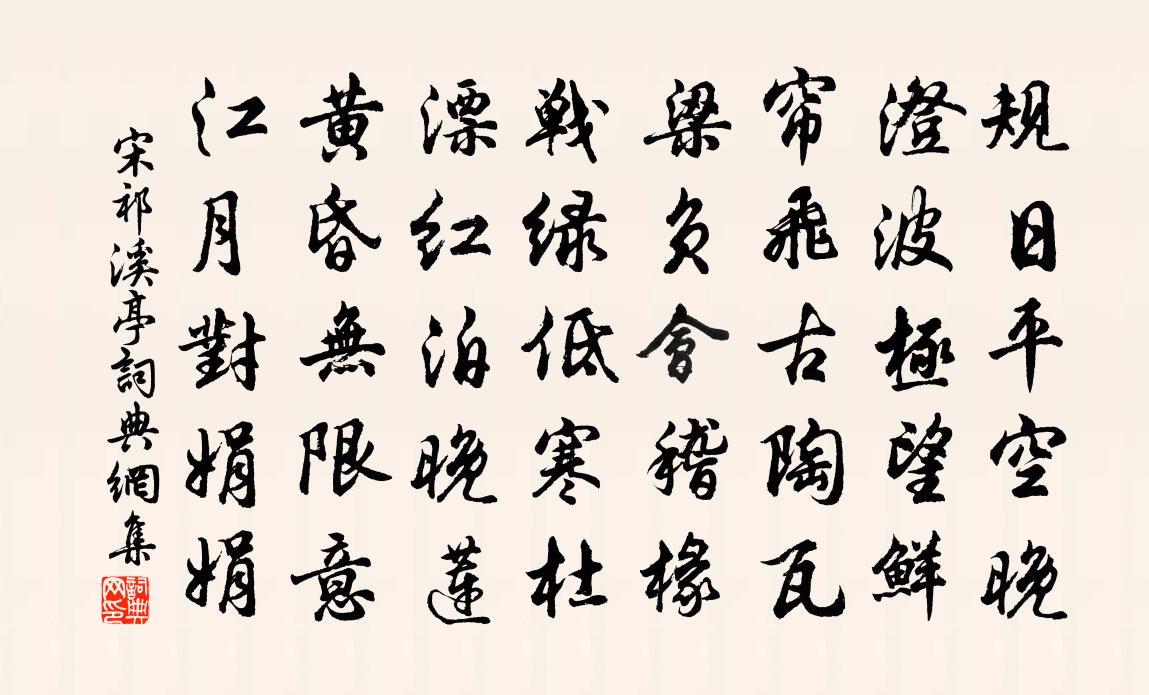 規日平空晚
澄波極望鮮
帘飛古陶瓦
梁負會稽椽
戰綠低寒杜
漂紅泊晚蓮
黃昏無限意
江月對娟娟
宋祁溪亭詞典網集
詞典網印